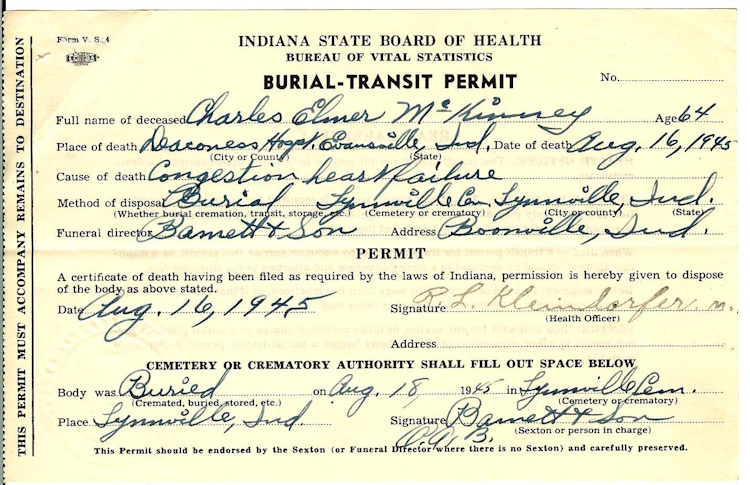 Form V. S. 4
INDIANA STATE BOARD OF HEALTH
BUREAU OF VITAL STATISTICS
BURIAL-TRANSIT PERMIT
No.
Full name of deceased Charles Elmer McKinney Age 64
Place of death Deaconess Hospt. Evansville, Ind. Date of death Aug. 16, 1945
(City or County) (State)
Cause of death Congestion heart failure
Method of disposal Burial Lynnville Cem. Lynnville, Ind.
(Whether burial cremation, transit, storage, etc.) (Cemetery or crematory) (City or county) (State)
Funeral director Barnett & Son Address Boonville, Ind.
PERMIT
A certificate of death having been filed as required by the laws of Indiana, permission is hereby given to dispose
of the body as above stated.
Date Aug. 16, 1945 Signature R. L. Kleindorfer, m.
(Health Officer)
Address
CEMETERY OR CREMATORY AUTHORITY SHALL FILL OUT SPACE BELOW
Body was Buried on Aug 18, 1945 in Lynnville Cem.
(Cremated, buried, stored, etc.) (Cemetery or crematory)
Place Lynnville, Ind. Signature Barnett & Son
(Sexton or person in charge)
O.G.B.
This Permit should be endorsed by the Sexton (or Funeral Director where there is no Sexton) and carefully preserved.
THIS PERMIT MUST ACCOMPANY REMAINS TO DESTINATION